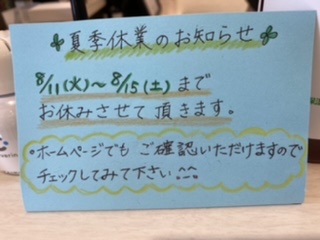 夏季休業のお知らせ
8/11(火)〜8/15(土)まで
お休みさせて頂きます。
・ホームページでもご確認いただけますので
チェックしてみて下さい^^